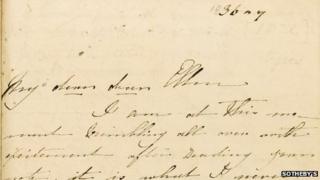 36
My dear dear Ellen
I am at this mo-
ment trembling all over with
excitement after reading your
is what I never
SOTHEBY'S